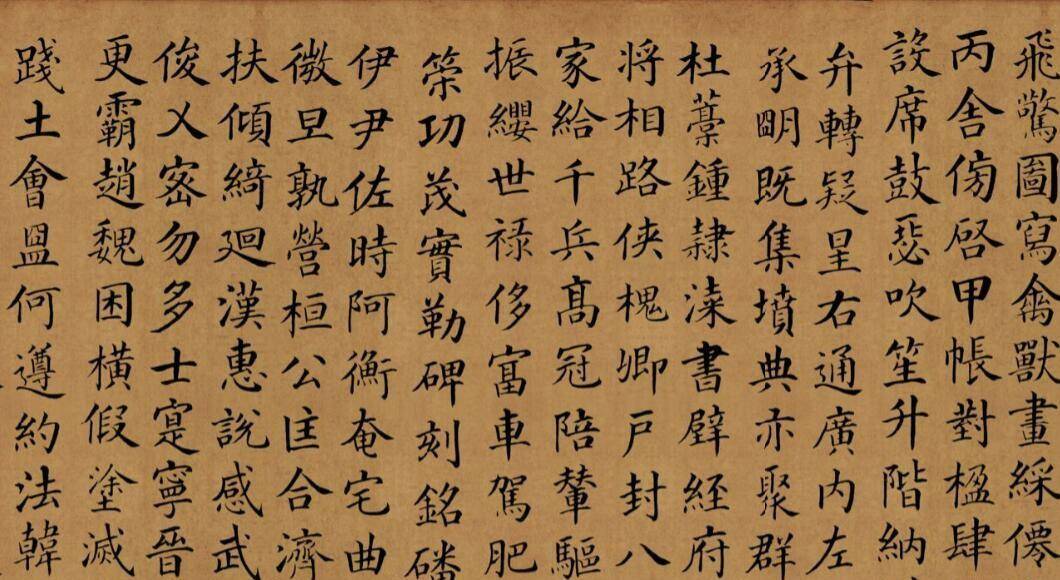 飛驚圖寫禽獸畫綵僊
丙舍傍啓甲帳對楹肆
設席鼓瑟吹笙升階納
弁轉疑星右通廣内左
承明既集墳典亦聚群
杜藁鍾隸漆書壁經府
將相路俠槐卿戶封八
家給千兵高冠陪輦驅
振纓世祿侈富車駕肥
策功茂實勒碑刻銘磻
伊尹佐時阿衡奄宅曲
微旦孰營桓公匡合濟
扶傾綺迴漢惠說感武
俊乂密勿多士寔寧晉
更霸趙魏困橫假塗滅
踐土會盟何遵約法韓